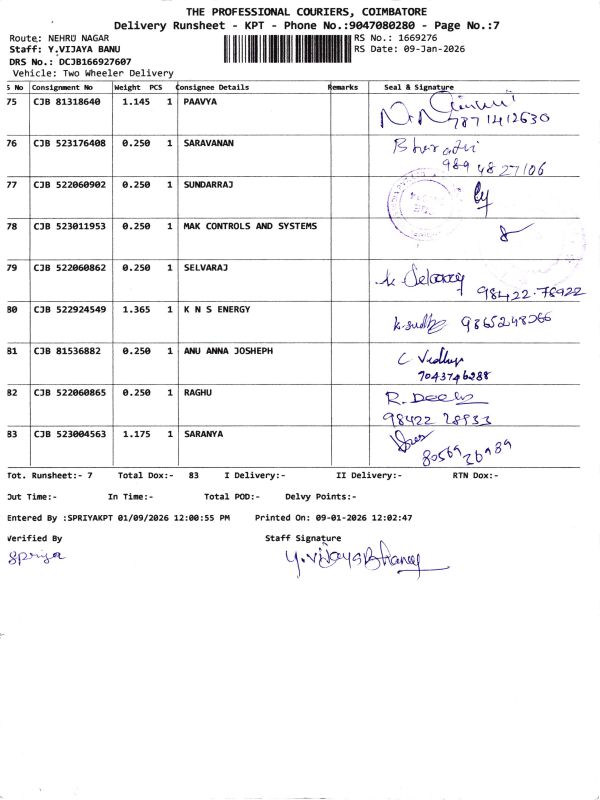 THE PROFESSIONAL COURIERS, COIMBATORE
Delivery Runsheet - KPT - Phone No.:9047080280 - Page No.:7
Route: NEHRU NAGAR RS No.: 1669276
Staff: Y.VIJAYA BANU RS Date: 09-Jan-2026
DRS No.: DCJB166927607
Vehicle: Two Wheeler Delivery
S No Consignment No Weight PCS Consignee Details Remarks Seal & Signature
75 CJB 81318640 1.145 1 PAAVYA
7871412630
76 CJB 523176408 0.250 1 SARAVANAN Bharathi
989 4827106
77 CJB 522060902 0.250 1 SUNDARRAJ
78 CJB 523011953 0.250 1 MAK CONTROLS AND SYSTEMS
79 CJB 522060862 0.250 1 SELVARAJ
98422.78922
80 CJB 522924549 1.365 1 K N S ENERGY 9865248266
81 CJB 81536882 0.250 1 ANU ANNA JOSHEPH C Vidhya
7043746288
82 CJB 522060865 0.250 1 RAGHU
98422 28933
83 CJB 523004563 1.175 1 SARANYA
8056926989
Tot. Runsheet:- 7 Total Dox:- 83 I Delivery:- II Delivery:- RTN Dox:-
Out Time:- In Time:- Total POD:- Delvy Points:-
Entered By :SPRIYAKPT 01/09/2026 12:00:55 PM Printed On: 09-01-2026 12:02:47
Verified By Staff Signature
Spriya Y.Vijaya Bhanu